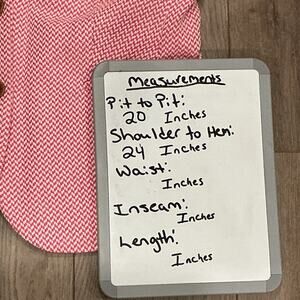 Measurements
Pit to Pit:
20 Inches
Shoulder to Hem:
24 Inches
Waist:
Inches
Inseam:
Inches
Length:
Inches